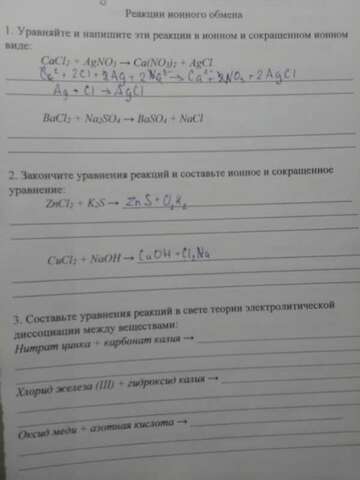 Реакции ионного обмена
1. Уравняйте и напишите эти реакции в ионном и сокращенном ионном
виде:
CaCl₂ + AgNO₃ → Ca(NO₃)₂ + AgCl
Ag + Cl → AgCl
BaCl₂ + Na₂SO₄ → BaSO₄ + NaCl
2. Закончите уравнения реакций и составьте ионное и сокращенное
уравнение:
ZnCl₂ + K₂S → ZnS +
CuCl₂ + NaOH → CuOH + Cl₂Na
3. Составьте уравнения реакций в свете теории электролитической
диссоциации между веществами:
Нитрат цинка + карбонат калия →
Хлорид железа (III) + гидроксид калия →
Оксид меди + азотная кислота →